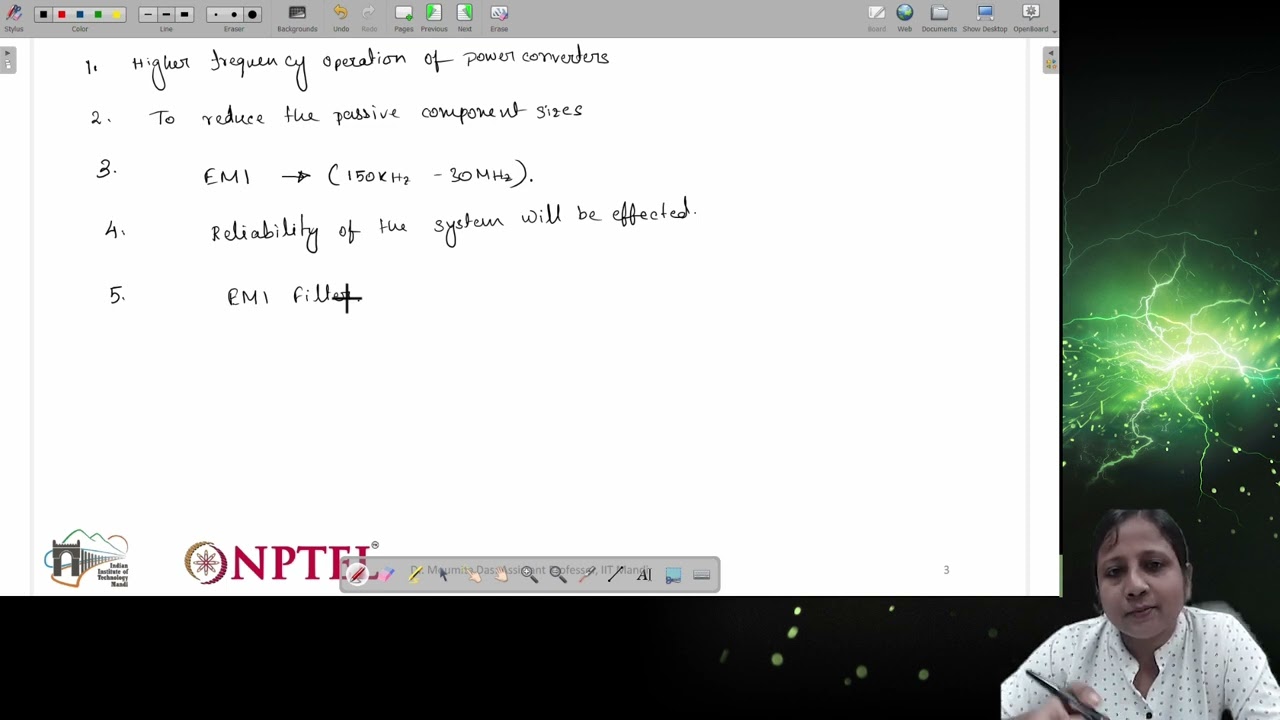 Stylus Color Line Eraser Backgrounds Undo Redo Pages Previous Next Erase Board Web Documents Show Desktop OpenBoard
1. Higher frequency operation of power converters
2. To reduce the passive component sizes
3. EMI → (150KHz - 30MHz).
4. Reliability of the system will be effected.
5. EMI Filter
Indian
Institute of
Technology
Mandi
NPTEL
TM
Assistant Professor, IIT Mandi
3
AI